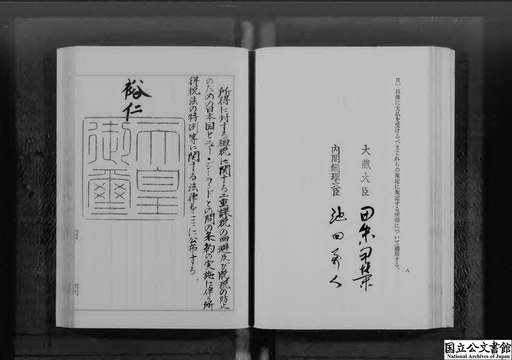 所得に対する租税に関する二重課税の回避及び脱税の防止
のための日本国とニュー・ジーランドとの間の条約の実施に伴う所
得税法の特例等に関する法律をここに公布する。
裕仁
天皇
御璽
以後に支払を受けるべきこれらの規定に規定する所得について適用する。
八
大蔵大臣
内閣総理大臣
池田勇人
国立公文書館
National Archives of Japan